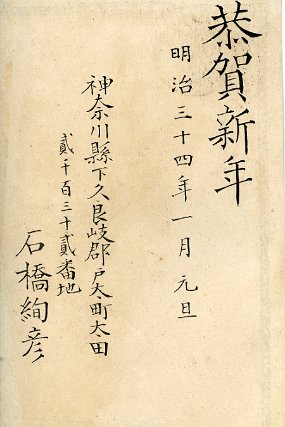 恭賀新年
明治三十四年一月元旦
神奈川縣下久良岐郡戸太町太田
貳千百三十貳番地
石橋絢彦